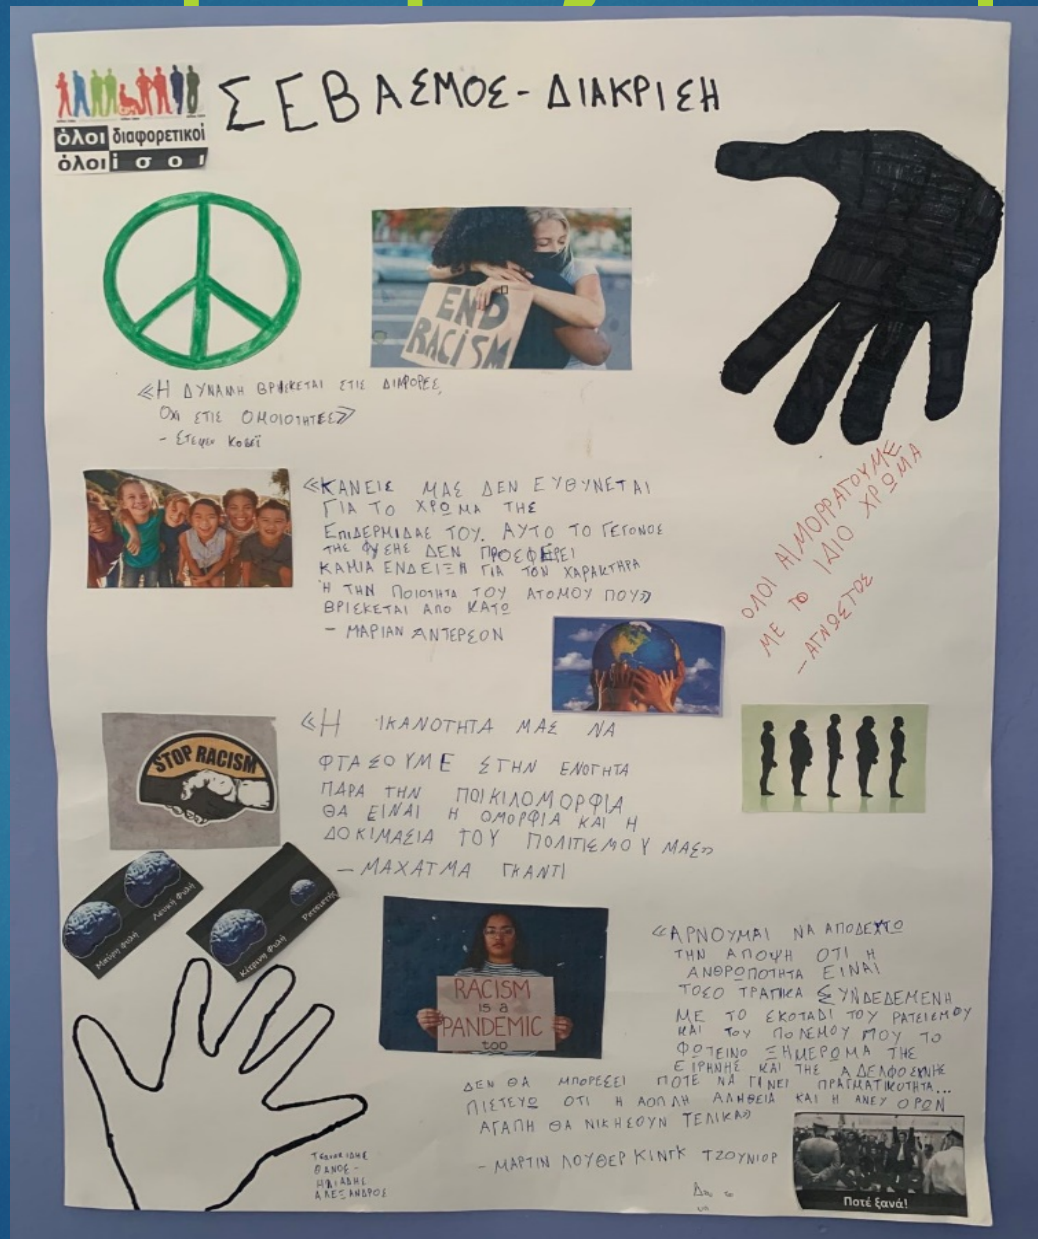 όλοι διαφορετικοί
όλοι ί σ ο ι
ΣΕΒΑΣΜΟΣ - ΔΙΑΚΡΙΣΗ
END
RACISM
«Η ΔΥΝΑΜΗ ΒΡΙΣΚΕΤΑΙ ΣΤΙΣ ΔΙΑΦΟΡΕΣ,
ΟΧΙ ΣΤΙΣ ΟΜΟΙΟΤΗΤΕΣ»
- ΣΤΕΦΕΝ ΚΟΒΕΪ
«ΚΑΝΕΙΣ ΜΑΣ ΔΕΝ ΕΥΘΥΝΕΤΑΙ
ΓΙΑ ΤΟ ΧΡΩΜΑ ΤΗΣ
ΕΠΙΔΕΡΜΙΔΑΣ ΤΟΥ. ΑΥΤΟ ΤΟ ΓΕΓΟΝΟΣ
ΤΗΣ ΦΥΣΗΣ ΔΕΝ ΠΡΟΣΦΕΡΕΙ
ΚΑΜΙΑ ΕΝΔΕΙΞΗ ΓΙΑ ΤΟΝ ΧΑΡΑΚΤΗΡΑ
Ή ΤΗΝ ΠΟΙΟΤΗΤΑ ΤΟΥ ΑΤΟΜΟΥ ΠΟΥ»
ΒΡΙΣΚΕΤΑΙ ΑΠΟ ΚΑΤΩ
- ΜΑΡΙΑΝ ΑΝΤΕΡΣΟΝ
ΟΛΟΙ ΑΙΜΟΡΡΑΓΟΥΜΕ
ΜΕ ΤΟ ΙΔΙΟ ΧΡΩΜΑ
- ΑΓΝΩΣΤΟΣ
STOP RACISM
«Η ΙΚΑΝΟΤΗΤΑ ΜΑΣ ΝΑ
ΦΤΑΣΟΥΜΕ ΣΤΗΝ ΕΝΟΤΗΤΑ
ΠΑΡΑ ΤΗΝ ΠΟΙΚΙΛΟΜΟΡΦΙΑ
ΘΑ ΕΙΝΑΙ Η ΟΜΟΡΦΙΑ ΚΑΙ Η
ΔΟΚΙΜΑΣΙΑ ΤΟΥ ΠΟΛΙΤΙΣΜΟΥ ΜΑΣ»
- ΜΑΧΑΤΜΑ ΓΚΑΝΤΙ
Μαύρη Φυλή
Λευκή Φυλή
Κίτρινη Φυλή
Ρατσιστής
RACISM
is a
PANDEMIC
too
«ΑΡΝΟΥΜΑΙ ΝΑ ΑΠΟΔΕΧΤΩ
ΤΗΝ ΑΠΟΨΗ ΟΤΙ Η
ΑΝΘΡΩΠΟΤΗΤΑ ΕΙΝΑΙ
ΤΟΣΟ ΤΡΑΓΙΚΑ ΣΥΝΔΕΔΕΜΕΝΗ
ΜΕ ΤΟ ΣΚΟΤΑΔΙ ΤΟΥ ΡΑΤΣΙΣΜΟΥ
ΚΑΙ ΤΟΥ ΠΟΛΕΜΟΥ ΠΟΥ ΤΟ
ΦΩΤΕΙΝΟ ΞΗΜΕΡΩΜΑ ΤΗΣ
ΕΙΡΗΝΗΣ ΚΑΙ ΤΗΣ ΑΔΕΛΦΟΣΥΝΗΣ
ΔΕΝ ΘΑ ΜΠΟΡΕΣΕΙ ΠΟΤΕ ΝΑ ΓΙΝΕΙ ΠΡΑΓΜΑΤΙΚΟΤΗΤΑ...
ΠΙΣΤΕΥΩ ΟΤΙ Η ΑΟΠΛΗ ΑΛΗΘΕΙΑ ΚΑΙ Η ΑΝΕΥ ΟΡΩΝ
ΑΓΑΠΗ ΘΑ ΝΙΚΗΣΟΥΝ ΤΕΛΙΚΑ»
- ΜΑΡΤΙΝ ΛΟΥΘΕΡ ΚΙΝΓΚ ΤΖΟΥΝΙΟΡ
ΘΑΝΟΣ -
ΗΛΙΑΔΗΣ
ΑΛΕΞΑΝΔΡΟΣ
Ποτέ ξανά!